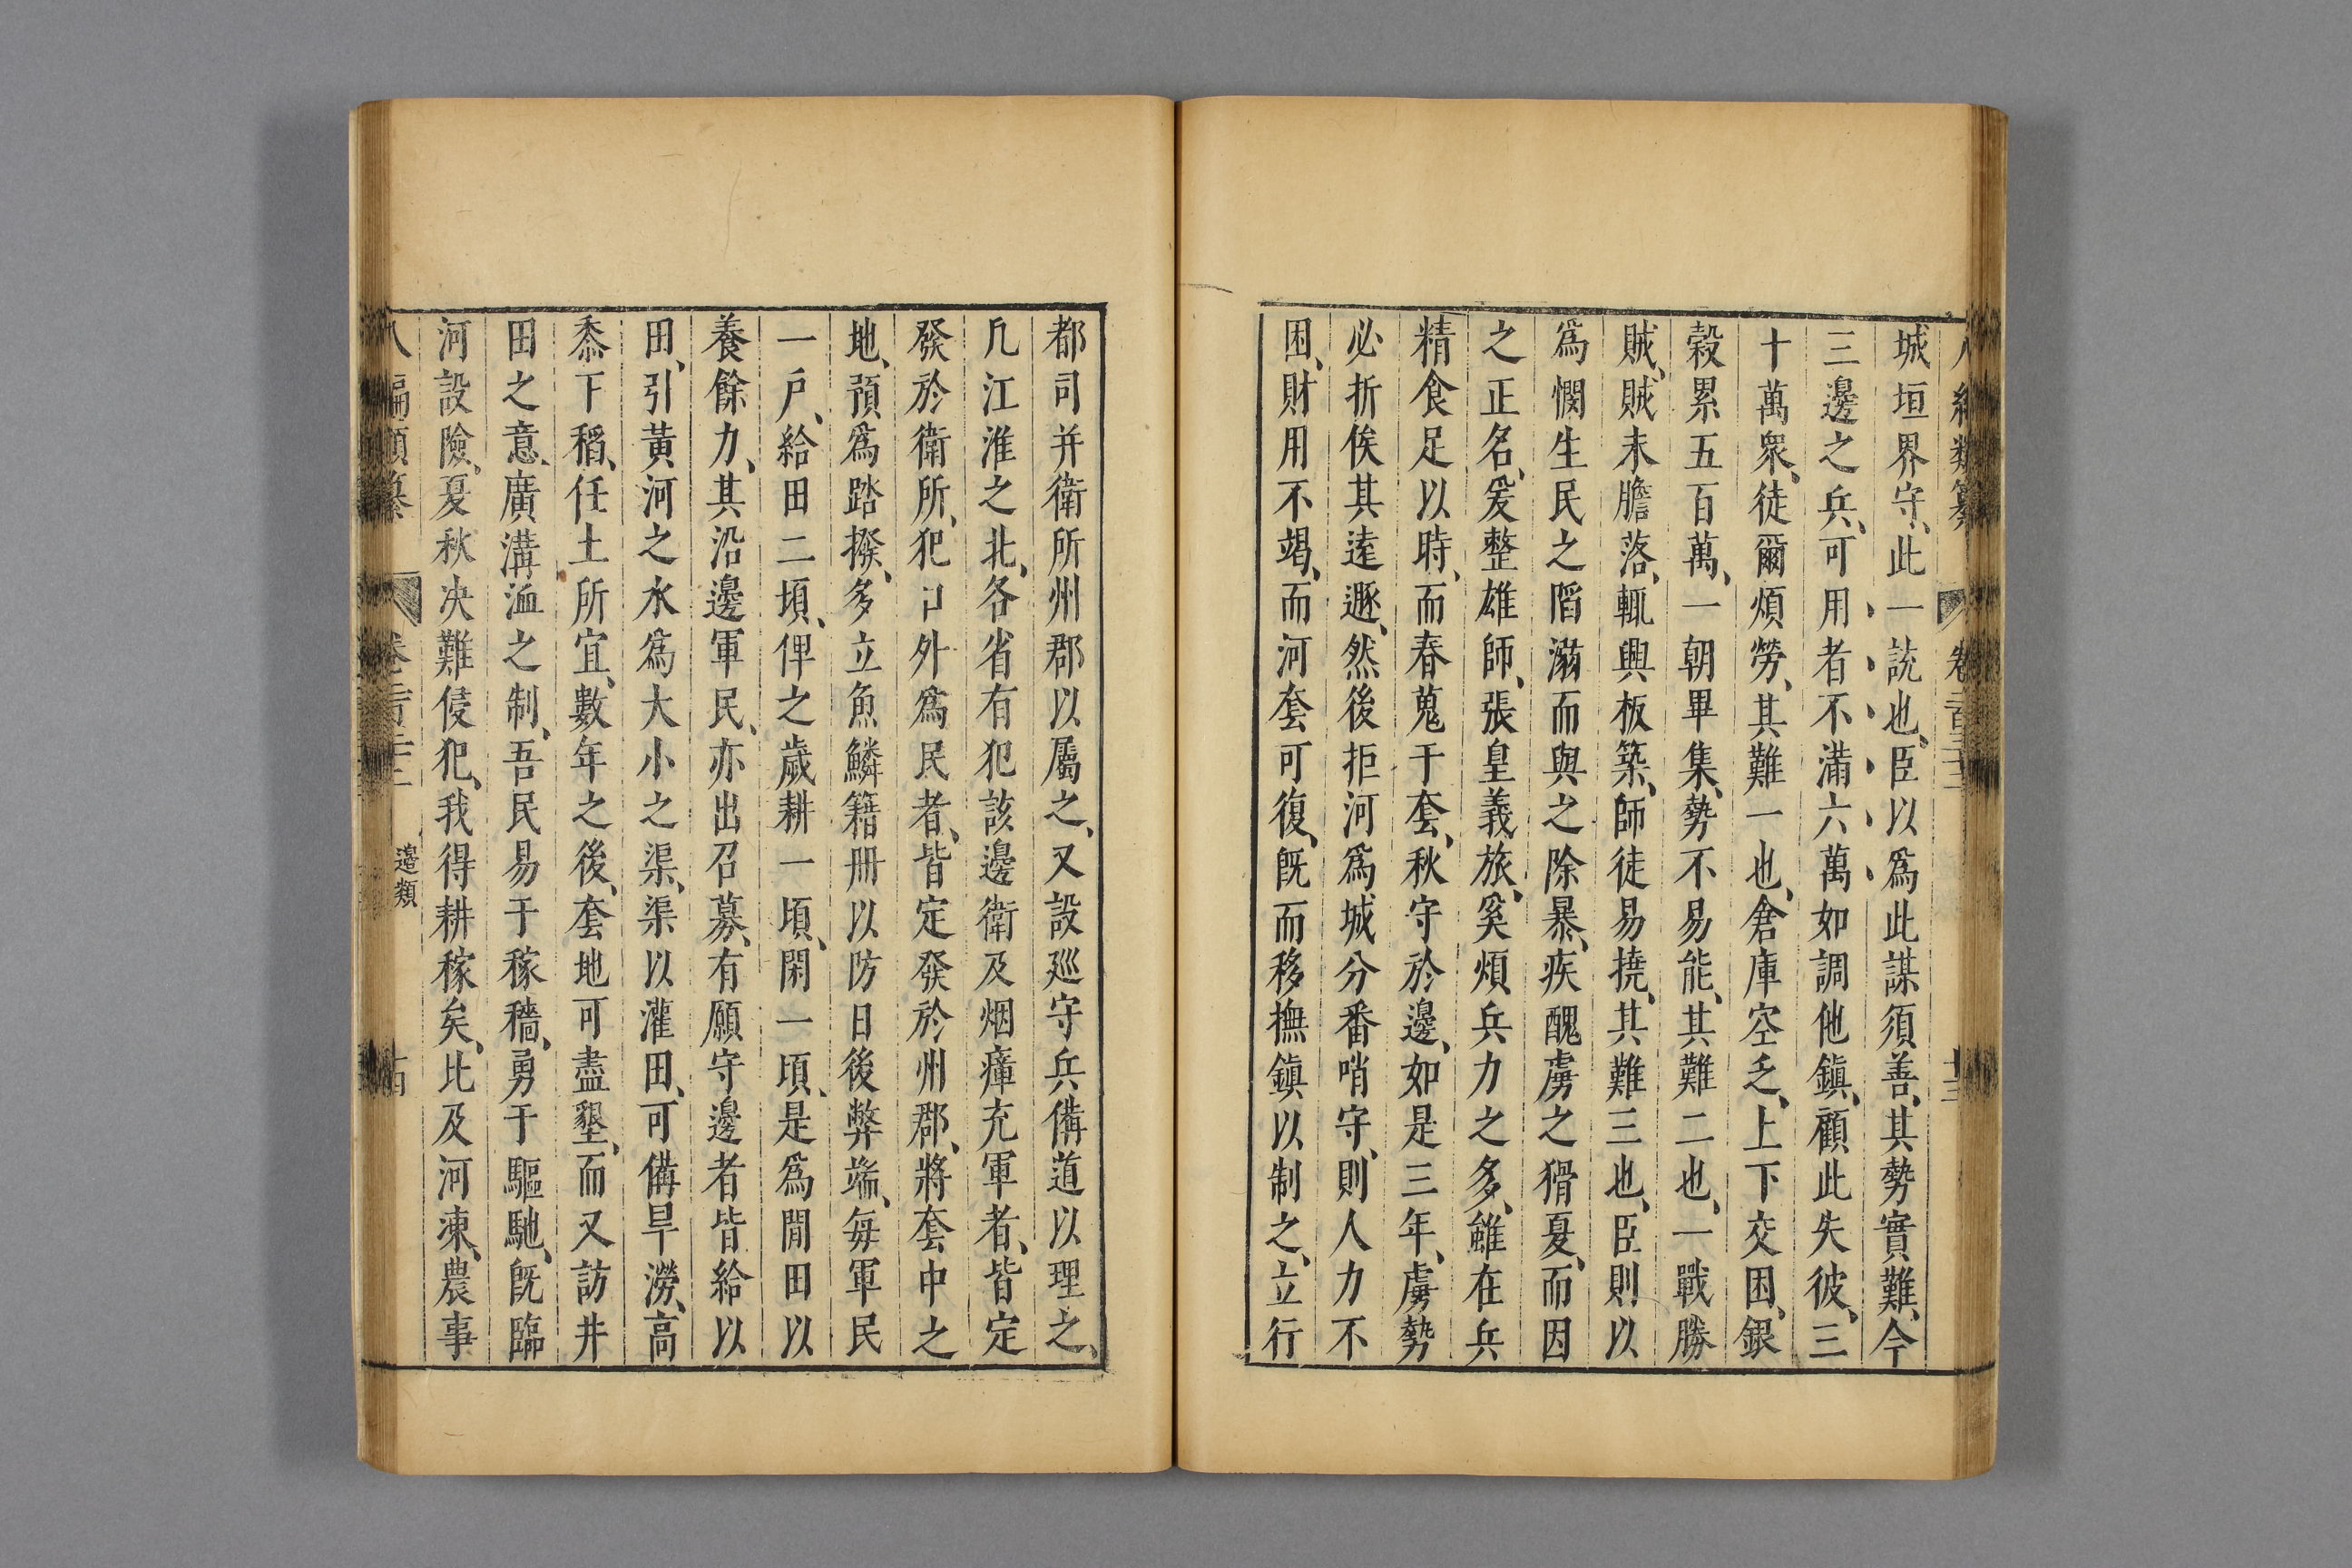 城垣界守、此一說也、臣以爲此謀須善、其勢實難、今
三邊之兵、可用者不滿六萬、如調他鎮、顧此失彼、三
十萬衆、徒爾煩勞、其難一也、倉庫空乏、上下交困、銀
穀累五百萬、一朝畢集、勢不易能、其難二也、一戰勝
賊、賊未膽落、輒興板築、師徒易撓、其難三也、臣則以
爲憫生民之陷溺而與之除暴、疾醜虜之猾夏、而因
之正名、爰整雄師、張皇義旅、奚煩兵力之多、雖在兵
精食足以時、而春蒐于套、秋守於邊、如是三年、虜勢
必折俟其遠遯、然後拒河爲城分番哨守、則人力不
困、財用不竭、而河套可復、旣而移撫鎮以制之、立行
都司并衛所州郡以屬之、又設巡守兵備道以理之、
凡江淮之北、各省有犯該邊衛及烟瘴充軍者、皆定
發於衛所、犯口外爲民者、皆定發於州郡、將套中之
地、預爲踏撥、多立魚鱗籍冊以防日後弊端、每軍民
一戶、給田二頃、俾之歲耕一頃、閑一頃、是爲閒田以
養餘力、其沿邊軍民、亦出召募、有願守邊者皆給以
田、引黃河之水爲大小之渠、渠以灌田、可備旱澇、高
黍下稻、任土所宜、數年之後、套地可盡墾、而又訪井
田之意、廣溝洫之制、吾民易于稼穡、勇于驅馳、旣臨
河設險、夏秋決難侵犯、我得耕稼矣、比及河凍、農事
邊類